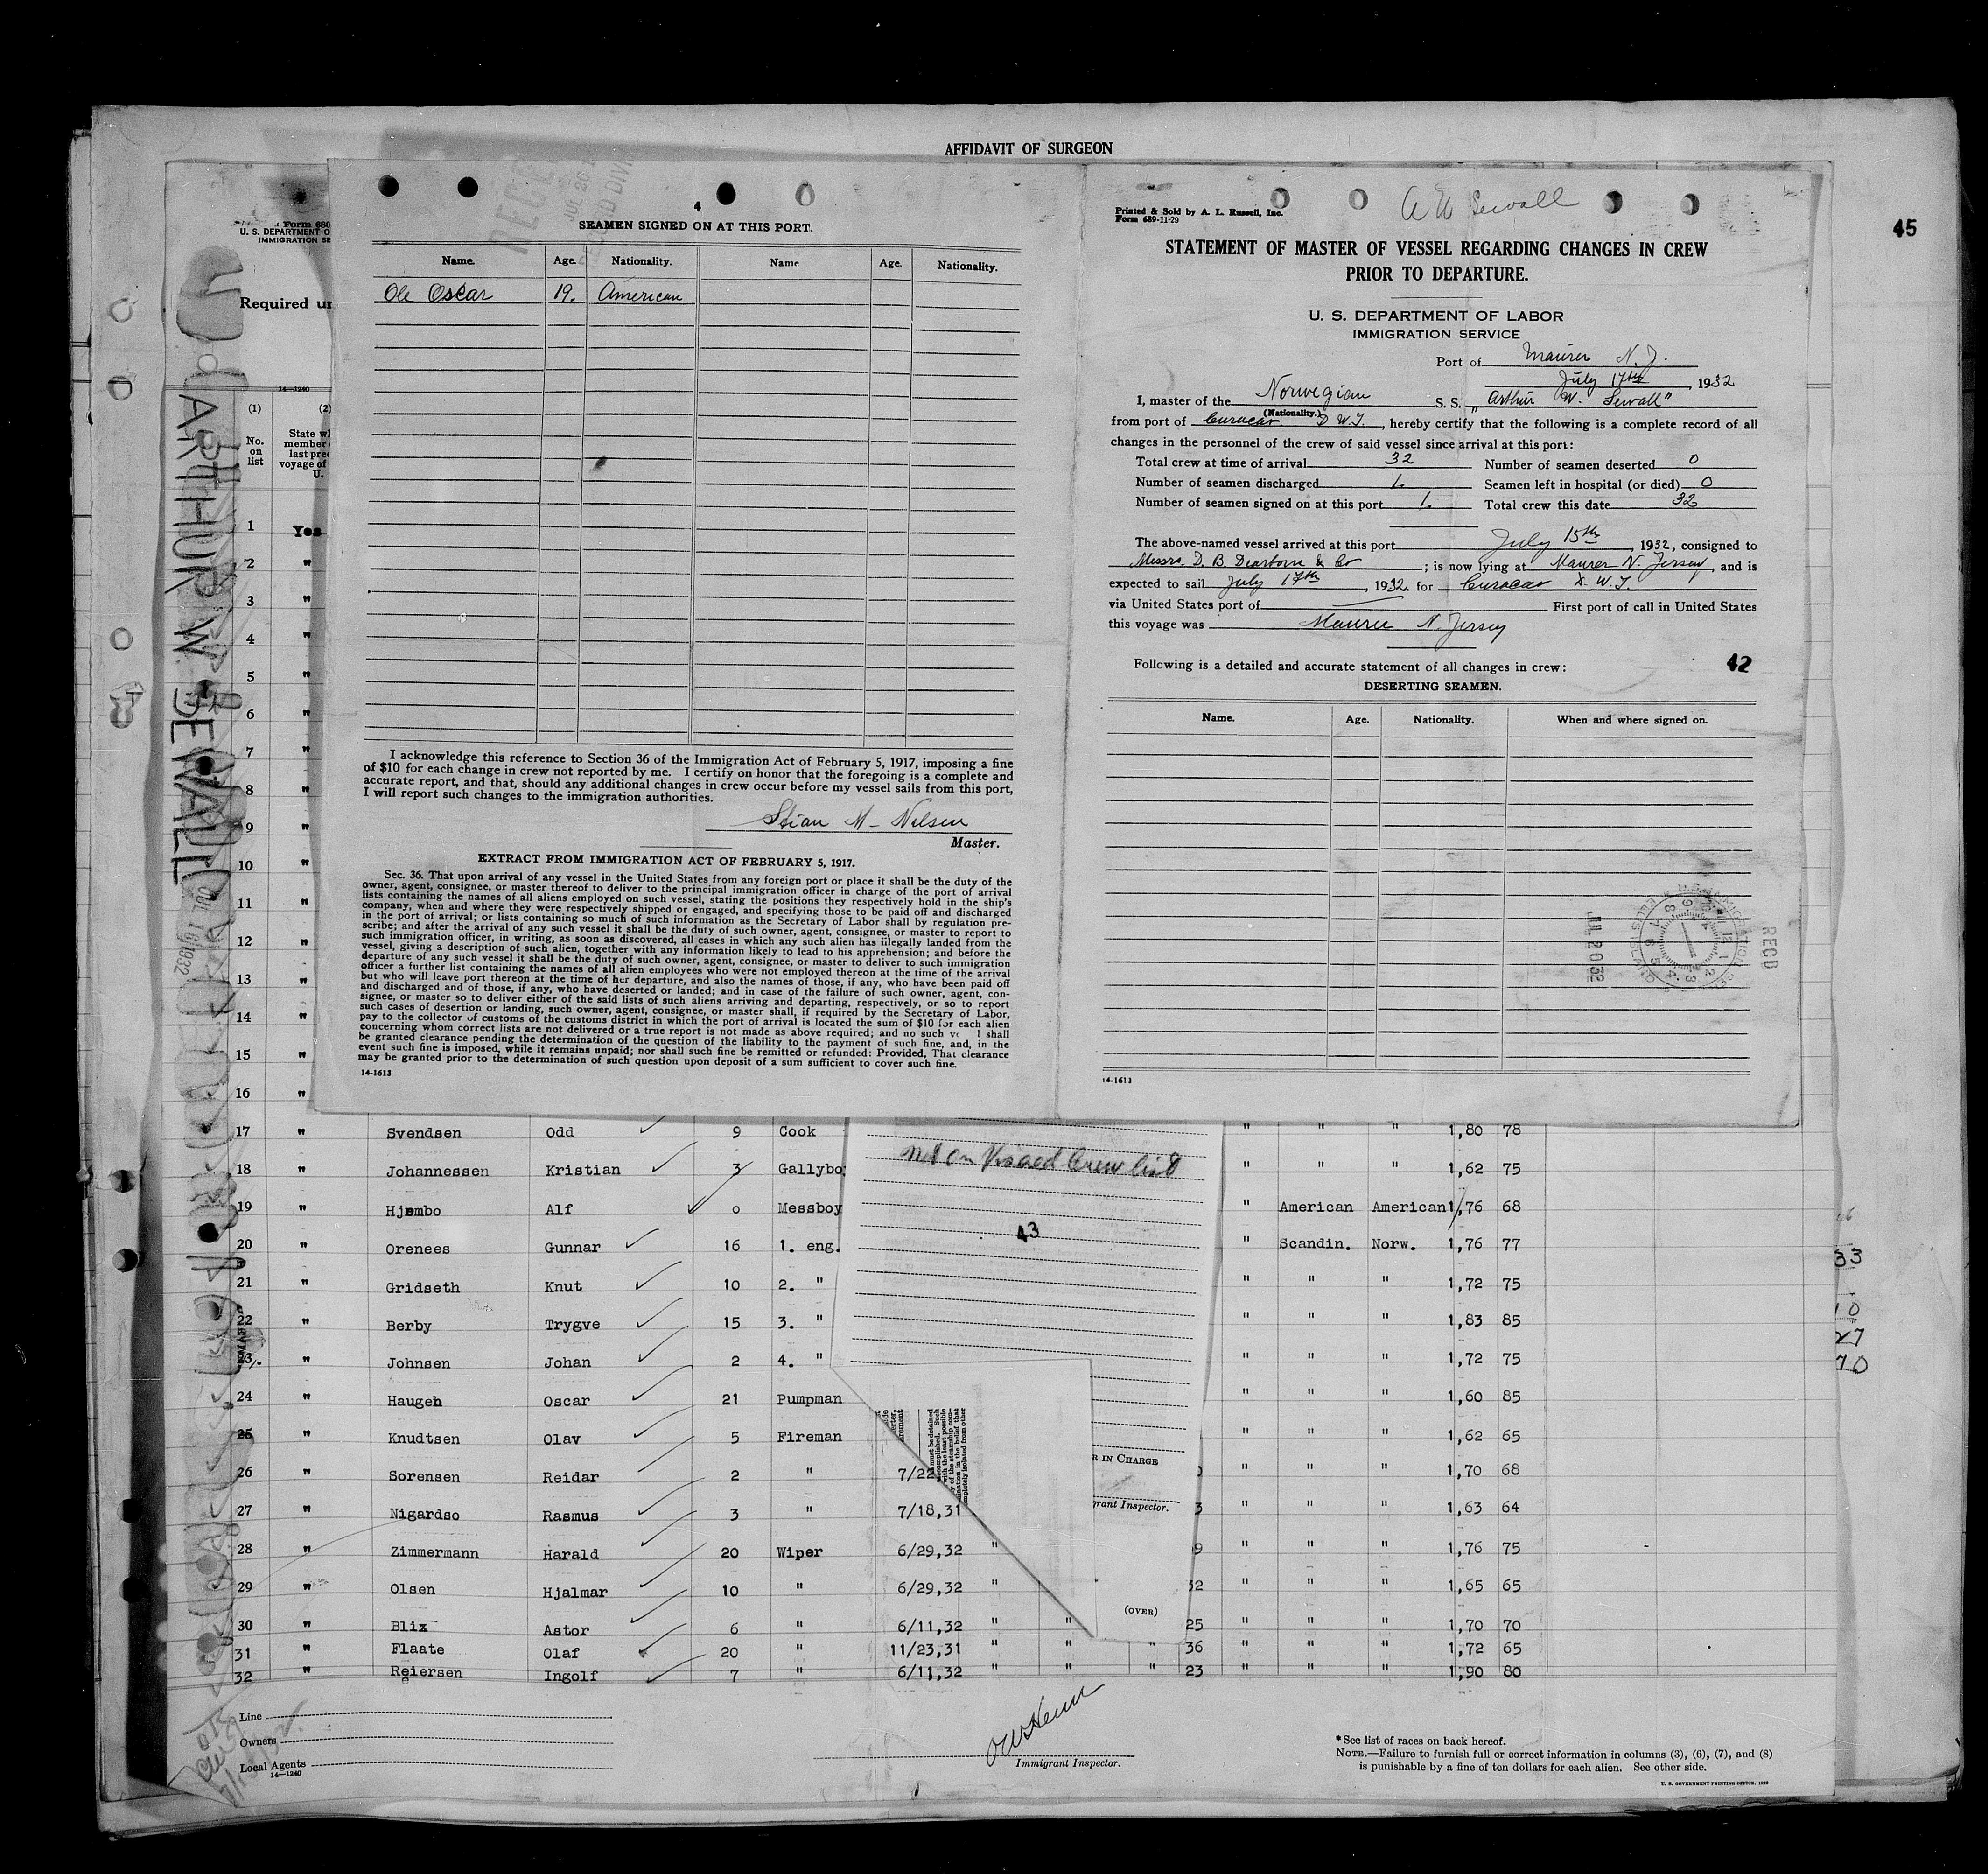 AFFIDAVIT OF SURGEON
45
4
SEAMEN SIGNED ON AT THIS PORT.
Name. Age. Nationality. Name Age. Nationality.
Ole Oscar 19. American
I acknowledge this reference to Section 36 of the Immigration Act of February 5, 1917, imposing a fine
of $10 for each change in crew not reported by me. I certify on honor that the foregoing is a complete and
accurate report, and that, should any additional changes in crew occur before my vessel sails from this port,
I will report such changes to the immigration authorities.
Stian M- Nilsen
Master.
EXTRACT FROM IMMIGRATION ACT OF FEBRUARY 5, 1917.
Sec. 36. That upon arrival of any vessel in the United States from any foreign port or place it shall be the duty of the
owner, agent, consignee, or master thereof to deliver to the principal immigration officer in charge of the port of arrival
lists containing the names of all aliens employed on such vessel, stating the positions they respectively hold in the ship's
company, when and where they were respectively shipped or engaged, and specifying those to be paid off and discharged
in the port of arrival; or lists containing so much of such information as the Secretary of Labor shall by regulation pre-
scribe; and after the arrival of any such vessel it shall be the duty of such owner, agent, consignee, or master to report to
such immigration officer, in writing, as soon as discovered, all cases in which any such alien has illegally landed from the
vessel, giving a description of such alien, together with any information likely to lead to his apprehension; and before the
departure of any such vessel it shall be the duty of such owner, agent, consignee, or master to deliver to such immigration
officer a further list containing the names of all alien employees who were not employed thereon at the time of the arrival
but who will leave port thereon at the time of her departure, and also the names of those, if any, who have been paid off
and discharged and of those, if any, who have deserted or landed; and in case of the failure of such owner, agent, con-
signee, or master so to deliver either of the said lists of such aliens arriving and departing, respectively, or so to report
such cases of desertion or landing, such owner, agent, consignee, or master shall, if required by the Secretary of Labor,
pay to the collector of customs of the customs district in which the port of arrival is located the sum of $10 for each alien
concerning whom correct lists are not delivered or a true report is not made as above required; and no such ve l shall
be granted clearance pending the determination of the question of the liability to the payment of such fine, and, in the
event such fine is imposed, while it remains unpaid; nor shall such fine be remitted or refunded: Provided, That clearance
may be granted prior to the determination of such question upon deposit of a sum sufficient to cover such fine.
14-1613
A W Sewall
Printed & Sold by A. L. Russell, Inc.
Form 689-11-29
STATEMENT OF MASTER OF VESSEL REGARDING CHANGES IN CREW
PRIOR TO DEPARTURE.
U. S. DEPARTMENT OF LABOR
IMMIGRATION SERVICE
Port of Maurer N. J.
July 17th, 1932
I, master of the Norwegian S. S. "Arthur W. Sewall"
(Nationality.)
from port of Curacao D W.I., hereby certify that the following is a complete record of all
changes in the personnel of the crew of said vessel since arrival at this port:
Total crew at time of arrival 32 Number of seamen deserted 0
Number of seamen discharged 1. Seamen left in hospital (or died) 0
Number of seamen signed on at this port 1. Total crew this date 32
The above-named vessel arrived at this port July 15th, 1932, consigned to
Messrs. D. B. Dearborn & Co; is now lying at Maurer N. Jersey, and is
expected to sail July 17th, 1932. for Curacao D. W. I.
via United States port of First port of call in United States
this voyage was Maurer N. Jersey
Following is a detailed and accurate statement of all changes in crew: 42
DESERTING SEAMEN.
Name. Age. Nationality. When and where signed on.
JUL 20 32
RECD
14-1613
Form 680
U. S. DEPARTMENT O
IMMIGRATION SE
Required un
14—1240
(1) (2)
No. on list
State wh
member
last prec
voyage of
U.
ARTHUR W. SEWALL
1 Yes
2 "
3 "
4 "
5 "
6 "
7 "
8 "
9 "
10 "
11 "
12 "
13 "
14 "
15 "
16 "
17 " Svendsen Odd 9 Cook " " " 1,80 78
18 " Johannessen Kristian 3 Gallyboy " " " 1,62 75
19 " Hjembo Alf 0 Messboy " American American 1,76 68
20 " Orenees Gunnar 16 1. eng. " Scandin. Norw. 1,76 77
21 " Gridseth Knut 10 2. " " " " 1,72 75
22 " Berby Trygve 15 3. " " " " 1,83 85
23 " Johnsen Johan 2 4. " " " " 1,72 75
24 " Haugen Oscar 21 Pumpman " " " 1,60 85
25 " Knudtsen Olav 5 Fireman " " " 1,62 65
26 " Sorensen Reidar 2 " 7/22 " " " 1,70 68
27 " Nigardso Rasmus 3 " 7/18,31 3 " " " 1,63 64
28 " Zimmermann Harald 20 Wiper 6/29,32 " 9 " " " 1,76 75
29 " Olsen Hjalmar 10 " 6/29,32 " 32 " " " 1,65 65
30 " Blix Astor 6 " 6/11,32 " " 25 " " " 1,70 70
31 " Flaate Olaf 20 " 11/23,31 " " " 36 " " " 1,72 65
32 " Reiersen Ingolf 7 " 6/11,32 " " " 23 " " " 1,90 80
not on Visaed Crew list
43
R IN CHARGE
grant Inspector.
(OVER)
33
10
27
70
Line
Owners
Local Agents
14—1240
Immigrant Inspector.
*See list of races on back hereof.
NOTE.—Failure to furnish full or correct information in columns (3), (6), (7), and (8)
is punishable by a fine of ten dollars for each alien. See other side.
U. S. GOVERNMENT PRINTING OFFICE.